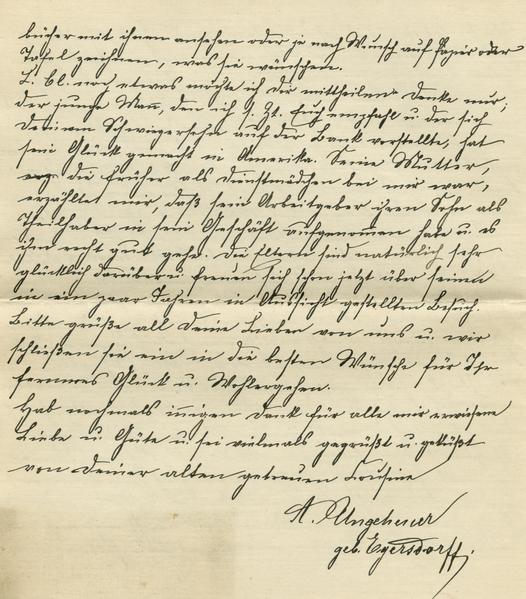 bücher mit ihnen ansehen oder je nach Wunsch auf Papier oder
Tafel zeichnen, was sie wünschen.
L. Cl. noch etwas möchte ich Dir mittheilen. Denke nur,
der junge Mann, den ich s. Zt. Euch empfahl u. der sich
Deinem Schwiegersohn auf der Bank vorstellte, hat
sein Glück gemacht in Amerika. Seine Mutter,
die früher als Dienstmädchen bei mir war,
erzählte mir, daß sein Arbeitgeber ihren Sohn als
Theilhaber in sein Geschäft aufgenommen habe u. es
ihm recht gut gehe. Die Eltern sind natürlich sehr
glücklich darüber u. freuen sich schon jetzt über seinen
in ein paar Jahren in Aussicht gestellten Besuch.
Bitte grüße all Deine Lieben von uns u. wir
schließen sie ein in die besten Wünsche für Ihr
ferneres Glück u. Wohlergehen.
Hab nochmals innigen Dank für alle mir erwiesene
Liebe u. Güte u. sei vielmals gegrüßt u. geküßt
von Deiner alten getreuen Cousine
A. Ungeheuer
geb. Egersdorff.